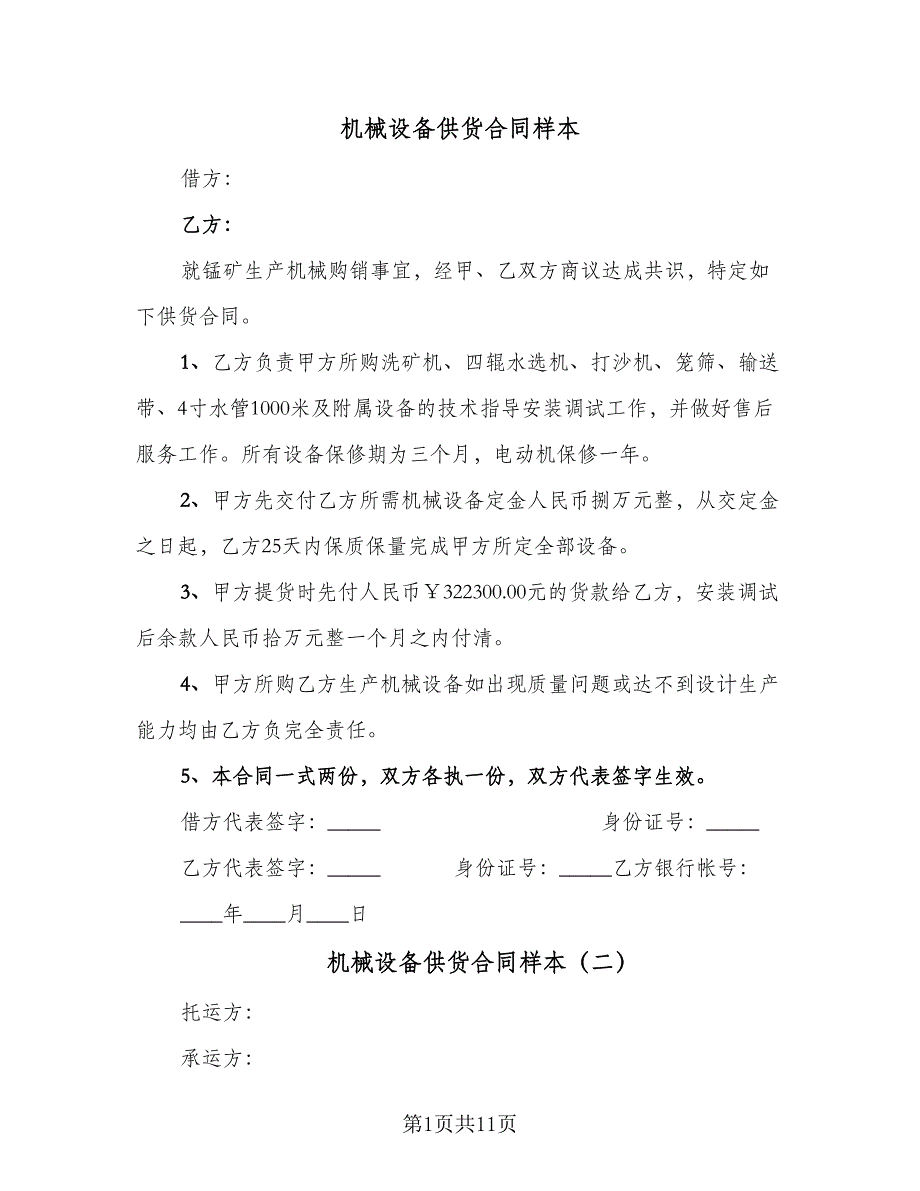 机械设备供货合同样本
借方：
乙方：
就锰矿生产机械购销事宜，经甲、乙双方商议达成共识，特定如
下供货合同。
1、乙方负责甲方所购洗矿机、四辊水选机、打沙机、笼筛、输送
带、4寸水管1000米及附属设备的技术指导安装调试工作，并做好售后
服务工作。所有设备保修期为三个月，电动机保修一年。
2、甲方先交付乙方所需机械设备定金人民币捌万元整，从交定金
之日起，乙方25天内保质保量完成甲方所定全部设备。
3、甲方提货时先付人民币￥322300.00元的货款给乙方，安装调试
后余款人民币拾万元整一个月之内付清。
4、甲方所购乙方生产机械设备如出现质量问题或达不到设计生产
能力均由乙方负完全责任。
5、本合同一式两份，双方各执一份，双方代表签字生效。
借方代表签字：_____ 身份证号：_____
乙方代表签字：_____ 身份证号：_____乙方银行帐号：
____年____月____日
机械设备供货合同样本（二）
托运方：
承运方：
第1页共11页